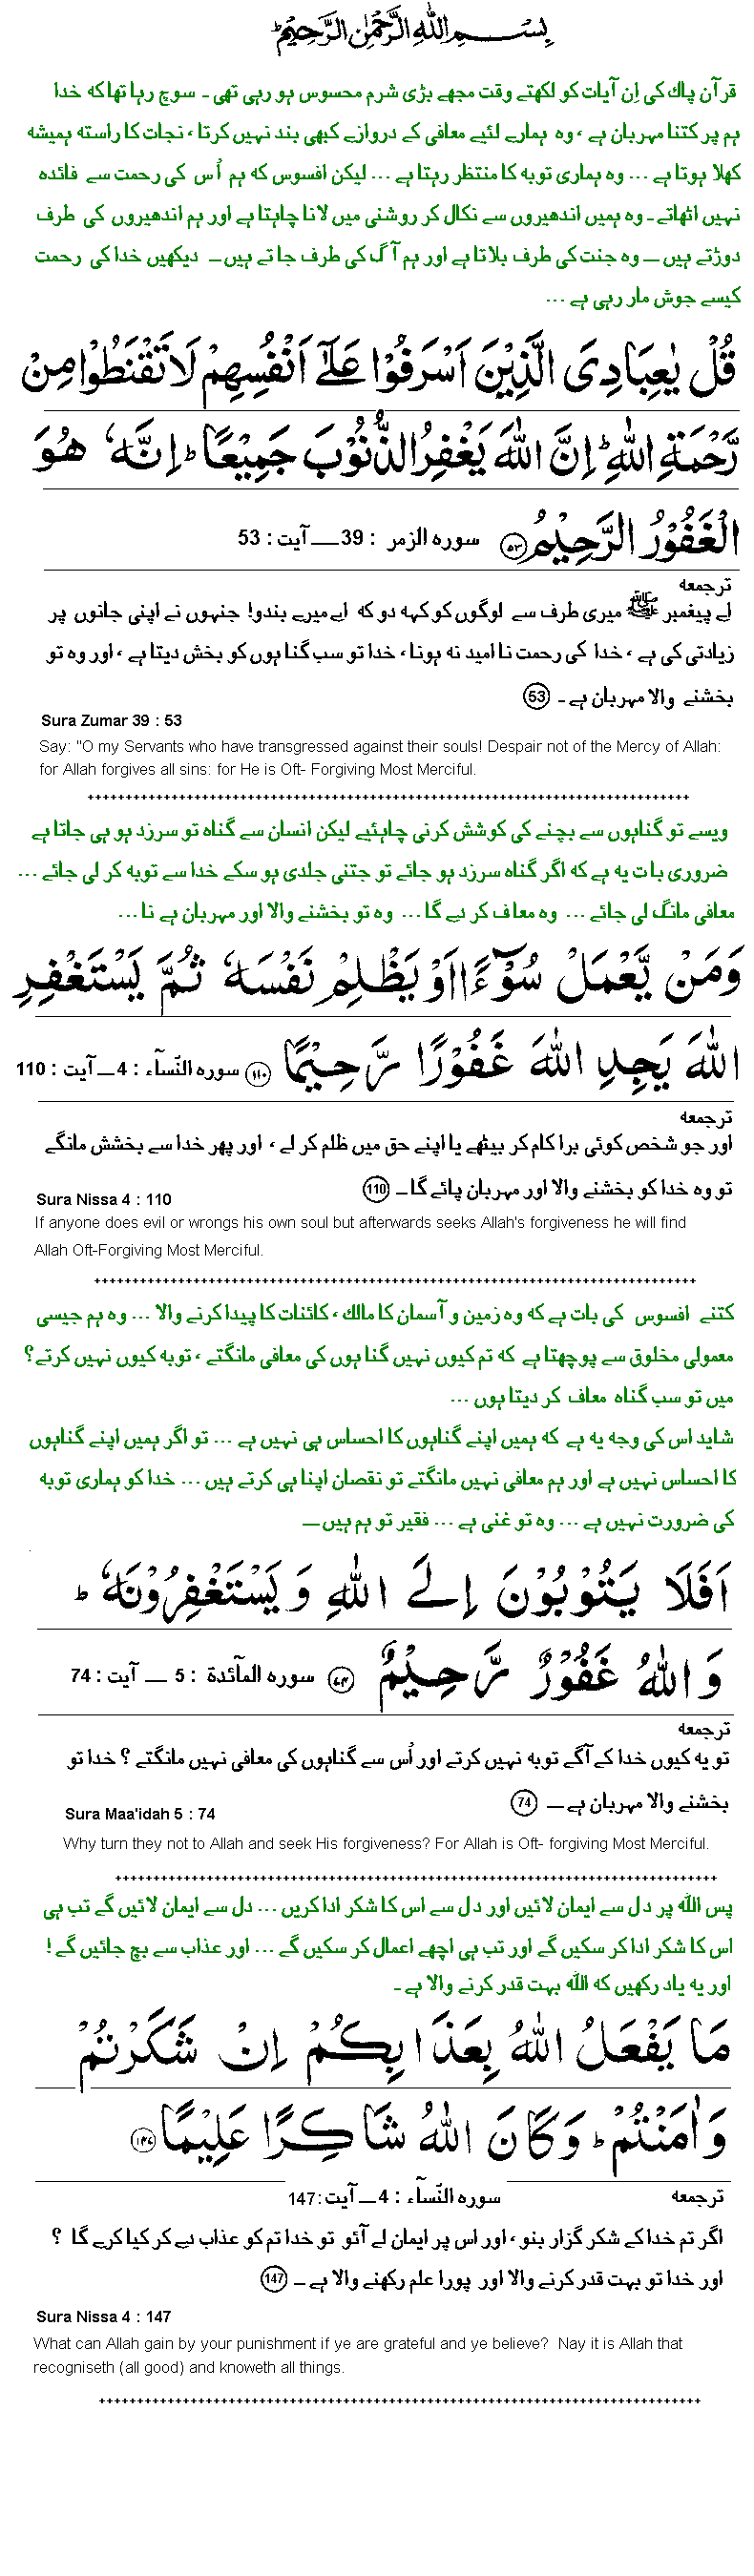 بِسْمِ اللّٰهِ الرَّحْمٰنِ الرَّحِيْمِ ؕ
قرآن پاک کی اِن آیات کو لکھتے وقت مجھے بڑی شرم محسوس ہو رہی تھی ۔ سوچ رہا تھا که خدا
ہم پر کتنا مہربان ہے ، وہ ہمارے لئیے معافی کے دروازے کبھی بند نہیں کرتا ، نجات کا راسته ہمیشه
کھلا ہوتا ہے ... وہ ہماری توبه کا منتظر رہتا ہے ... لیکن افسوس که ہم اُس کی رحمت سے فائدہ
نہیں اٹھاتے ۔ وہ ہمیں اندھیروں سے نکال کر روشنی میں لانا چاہتا ہے اور ہم اندھیروں کی طرف
دوڑتے ہیں ــ وہ جنت کی طرف بلاتا ہے اور ہم آگ کی طرف جاتے ہیں ــ دیکھیں خدا کی رحمت
کیسے جوش مار رہی ہے ...
قُلْ يٰعِبَادِىَ الَّذِيْنَ اَسْرَفُوْا عَلٰٓى اَنْفُسِهِمْ لَا تَقْنَطُوْا مِنْ
رَّحْمَةِ اللّٰهِ ؕ اِنَّ اللّٰهَ يَغْفِرُ الذُّنُوْبَ جَمِيْعًا ؕ اِنَّهٗ هُوَ
الْغَفُوْرُ الرَّحِيْمُ ۵۳ سوره الزمر : 39 ـــ آیت : 53
ترجمعه
اے پیغمبر ﷺ میری طرف سے لوگوں کو کہه دو که اے میرے بندو! جنہوں نے اپنی جانوں پر
زیادتی کی ہے ، خدا کی رحمت نا امید نه ہونا ، خدا تو سب گناہوں کو بخش دیتا ہے ، اور وہ تو
بخشنے والا مہربان ہے ۔ 53
Sura Zumar 39 : 53
Say: "O my Servants who have transgressed against their souls! Despair not of the Mercy of Allah:
for Allah forgives all sins: for He is Oft- Forgiving Most Merciful.
++++++++++++++++++++++++++++++++++++++++++++++++++++++++++++++++++++++++++++++++
ویسے تو گناہوں سے بچنے کی کوشش کرنی چاہئیے لیکن انسان سے گناہ تو سرزد ہو ہی جاتا ہے
ضروری بات یه ہے که اگر گناہ سرزد ہو جائے تو جتنی جلدی ہو سکے خدا سے توبه کر لی جائے ...
معافی مانگ لی جائے ... وہ معاف کر دے گا ... وہ تو بخشنے والا اور مہربان ہے نا ...
وَمَنْ يَّعْمَلْ سُوْٓءًا اَوْ يَظْلِمْ نَفْسَهٗ ثُمَّ يَسْتَغْفِرِ
اللّٰهَ يَجِدِ اللّٰهَ غَفُوْرًا رَّحِيْمًا ۱۱۰ سوره النّسآء : 4 ــ آیت : 110
ترجمعه
اور جو شخص کوئی برا کام کر بیٹھے یا اپنے حق میں ظلم کر لے ، اور پھر خدا سے بخشش مانگے
تو وہ خدا کو بخشنے والا اور مہربان پائے گا ــ 110
Sura Nissa 4 : 110
If anyone does evil or wrongs his own soul but afterwards seeks Allah's forgiveness he will find
Allah Oft-Forgiving Most Merciful.
++++++++++++++++++++++++++++++++++++++++++++++++++++++++++++++++++++++++++++++++
کتنے افسوس کی بات ہے که وہ زمین و آسمان کا مالک ، کائنات کا پیدا کرنے والا ... وہ ہم جیسی
معمولی مخلوق سے پوچھتا ہے که تم کیوں نہیں گناہوں کی معافی مانگتے ، توبه کیوں نہیں کرتے؟
میں تو سب گناہ معاف کر دیتا ہوں ...
شاید اس کی وجه یه ہے که ہمیں اپنے گناہوں کا احساس ہی نہیں ہے ... تو اگر ہمیں اپنے گناہوں
کا احساس نہیں ہے اور ہم معافی نہیں مانگتے تو نقصان اپنا ہی کرتے ہیں ... خدا کو ہماری توبه
کی ضرورت نہیں ہے ... وہ تو غنی ہے ... فقیر تو ہم ہیں ــ
اَفَلَا يَتُوْبُوْنَ اِلَى اللّٰهِ وَيَسْتَغْفِرُوْنَهٗ ؕ
وَاللّٰهُ غَفُوْرٌ رَّحِيْمٌ ۷۴ سوره المآئدة : 5 ــ آیت : 74
ترجمعه
تو یه کیوں خدا کے آگے توبه نہیں کرتے اور اُس سے گناہوں کی معافی نہیں مانگتے ؟ خدا تو
بخشنے والا مہربان ہے ــ 74
Sura Maa'idah 5 : 74
Why turn they not to Allah and seek His forgiveness? For Allah is Oft- forgiving Most Merciful.
++++++++++++++++++++++++++++++++++++++++++++++++++++++++++++++++++++++++++++++++
پس الله پر دل سے ایمان لائیں اور دل سے اس کا شکر ادا کریں ... دل سے ایمان لائیں گے تب ہی
اس کا شکر ادا کر سکیں گے اور تب ہی اچھے اعمال کر سکیں گے ... اور عذاب سے بچ جائیں گے !
اور یه یاد رکھیں که الله بہت قدر کرنے والا ہے ۔
مَا يَفْعَلُ اللّٰهُ بِعَذَابِكُمْ اِنْ شَكَرْتُمْ
وَاٰمَنْتُمْ ؕ وَكَانَ اللّٰهُ شَاكِرًا عَلِيْمًا ۱۴۷
سوره النّسآء : 4 ــ آیت : 147
ترجمعه
اگر تم خدا کے شکر گزار بنو ، اور اس پر ایمان لے آئو تو خدا تم کو عذاب دے کر کیا کرے گا ؟
اور خدا تو بہت قدر کرنے والا اور پورا علم رکھنے والا ہے ــ 147
Sura Nissa 4 : 147
What can Allah gain by your punishment if ye are grateful and ye believe? Nay it is Allah that
recogniseth (all good) and knoweth all things.
++++++++++++++++++++++++++++++++++++++++++++++++++++++++++++++++++++++++++++++++